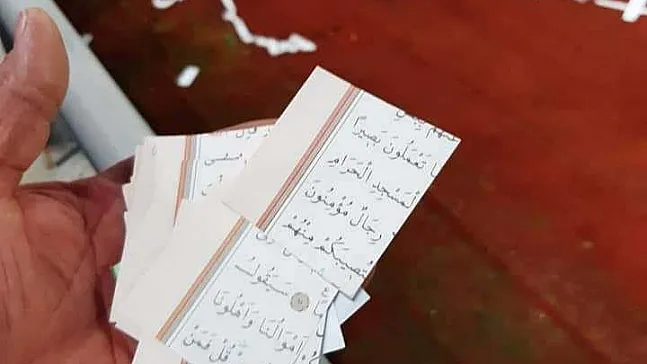 ا تَعْمَلُونَ بَصِيرً
لْمَسْجِدِ الْحَرَامِ
رِجَالٌ مُؤْمِنُونَ
تُصِيبَكُمْ مِنْهُمْ
سَيَقُولُ
أَمْوَالُنَا وَأَهْلُونَا
قُلْ فَمَنْ